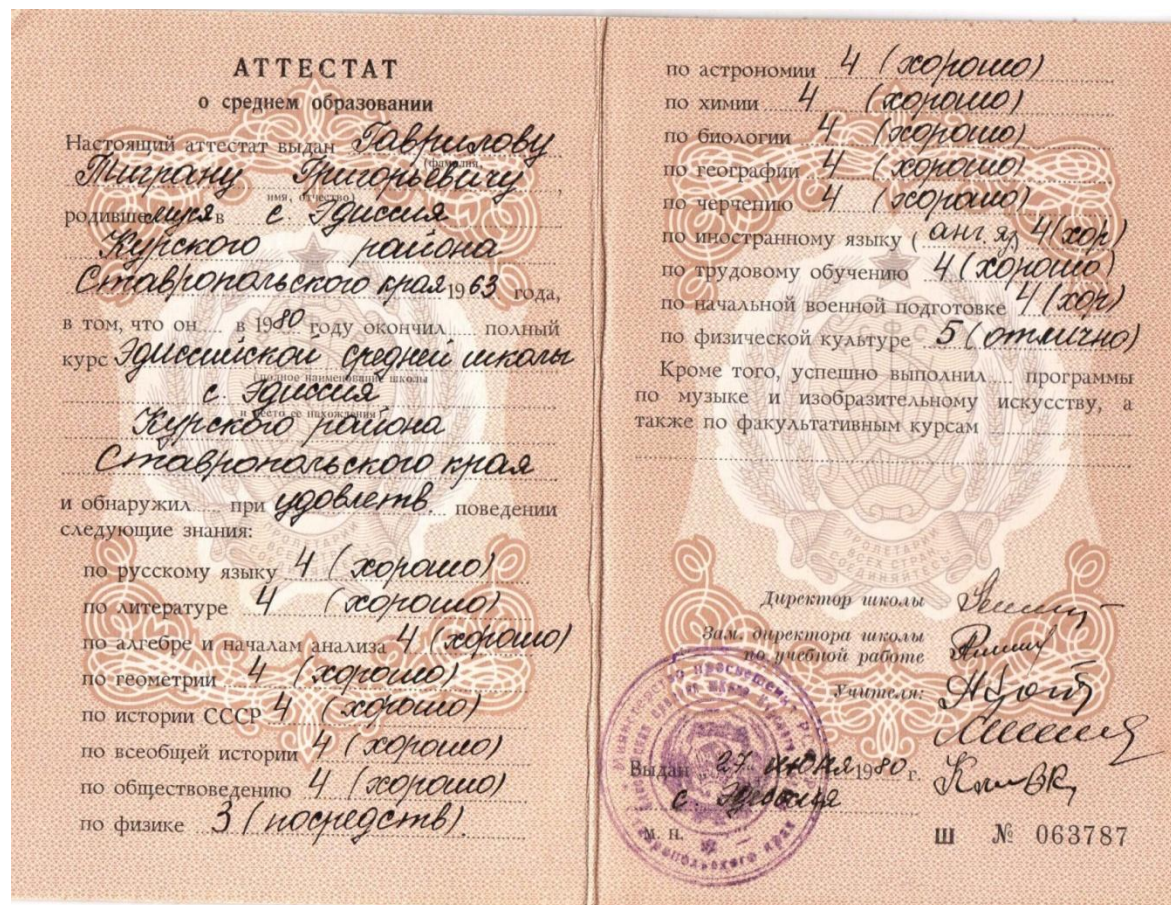 АТТЕСТАТ
о среднем образовании
Настоящий аттестат выдан Гаврилову
(фамилия,
Тиграну Григорьевичу,
имя, отчество)
родившемуся в с. Эдиссия
Курского района
Ставропольского края 1963 года,
в том, что он.... в 1980 году окончил.... полный
курс Эдиссийской средней школы
(полное наименование школы
с. Эдиссия
и место ее нахождения)
Курского района
Ставропольского края
и обнаружил.... при удовлетв. поведении
следующие знания:
по русскому языку 4 (хорошо)
по литературе 4 (хорошо)
по алгебре и началам анализа 4 (хорошо)
по геометрии 4 (хорошо)
по истории СССР 4 (хорошо)
по всеобщей истории 4 (хорошо)
по обществоведению 4 (хорошо)
по физике 3 (посредств).
по астрономии 4 (хорошо)
по химии 4 (хорошо)
по биологии 4 (хорошо)
по географии 4 (хорошо)
по черчению 4 (хорошо)
по иностранному языку (анг. яз) 4 (хор)
по трудовому обучению 4 (хорошо)
по начальной военной подготовке 4 (хор)
по физической культуре 5 (отлично)
Кроме того, успешно выполнил.... программы
по музыке и изобразительному искусству, а
также по факультативным курсам
ПРОЛЕТАРИИ
ВСЕХ СТРАН
СОЕДИНЯЙТЕСЬ
Директор школы
Зам. директора школы
по учебной работе
Учителя:
Выдан „27" июня 1980 г.
с.
М. П.
Ш № 063787